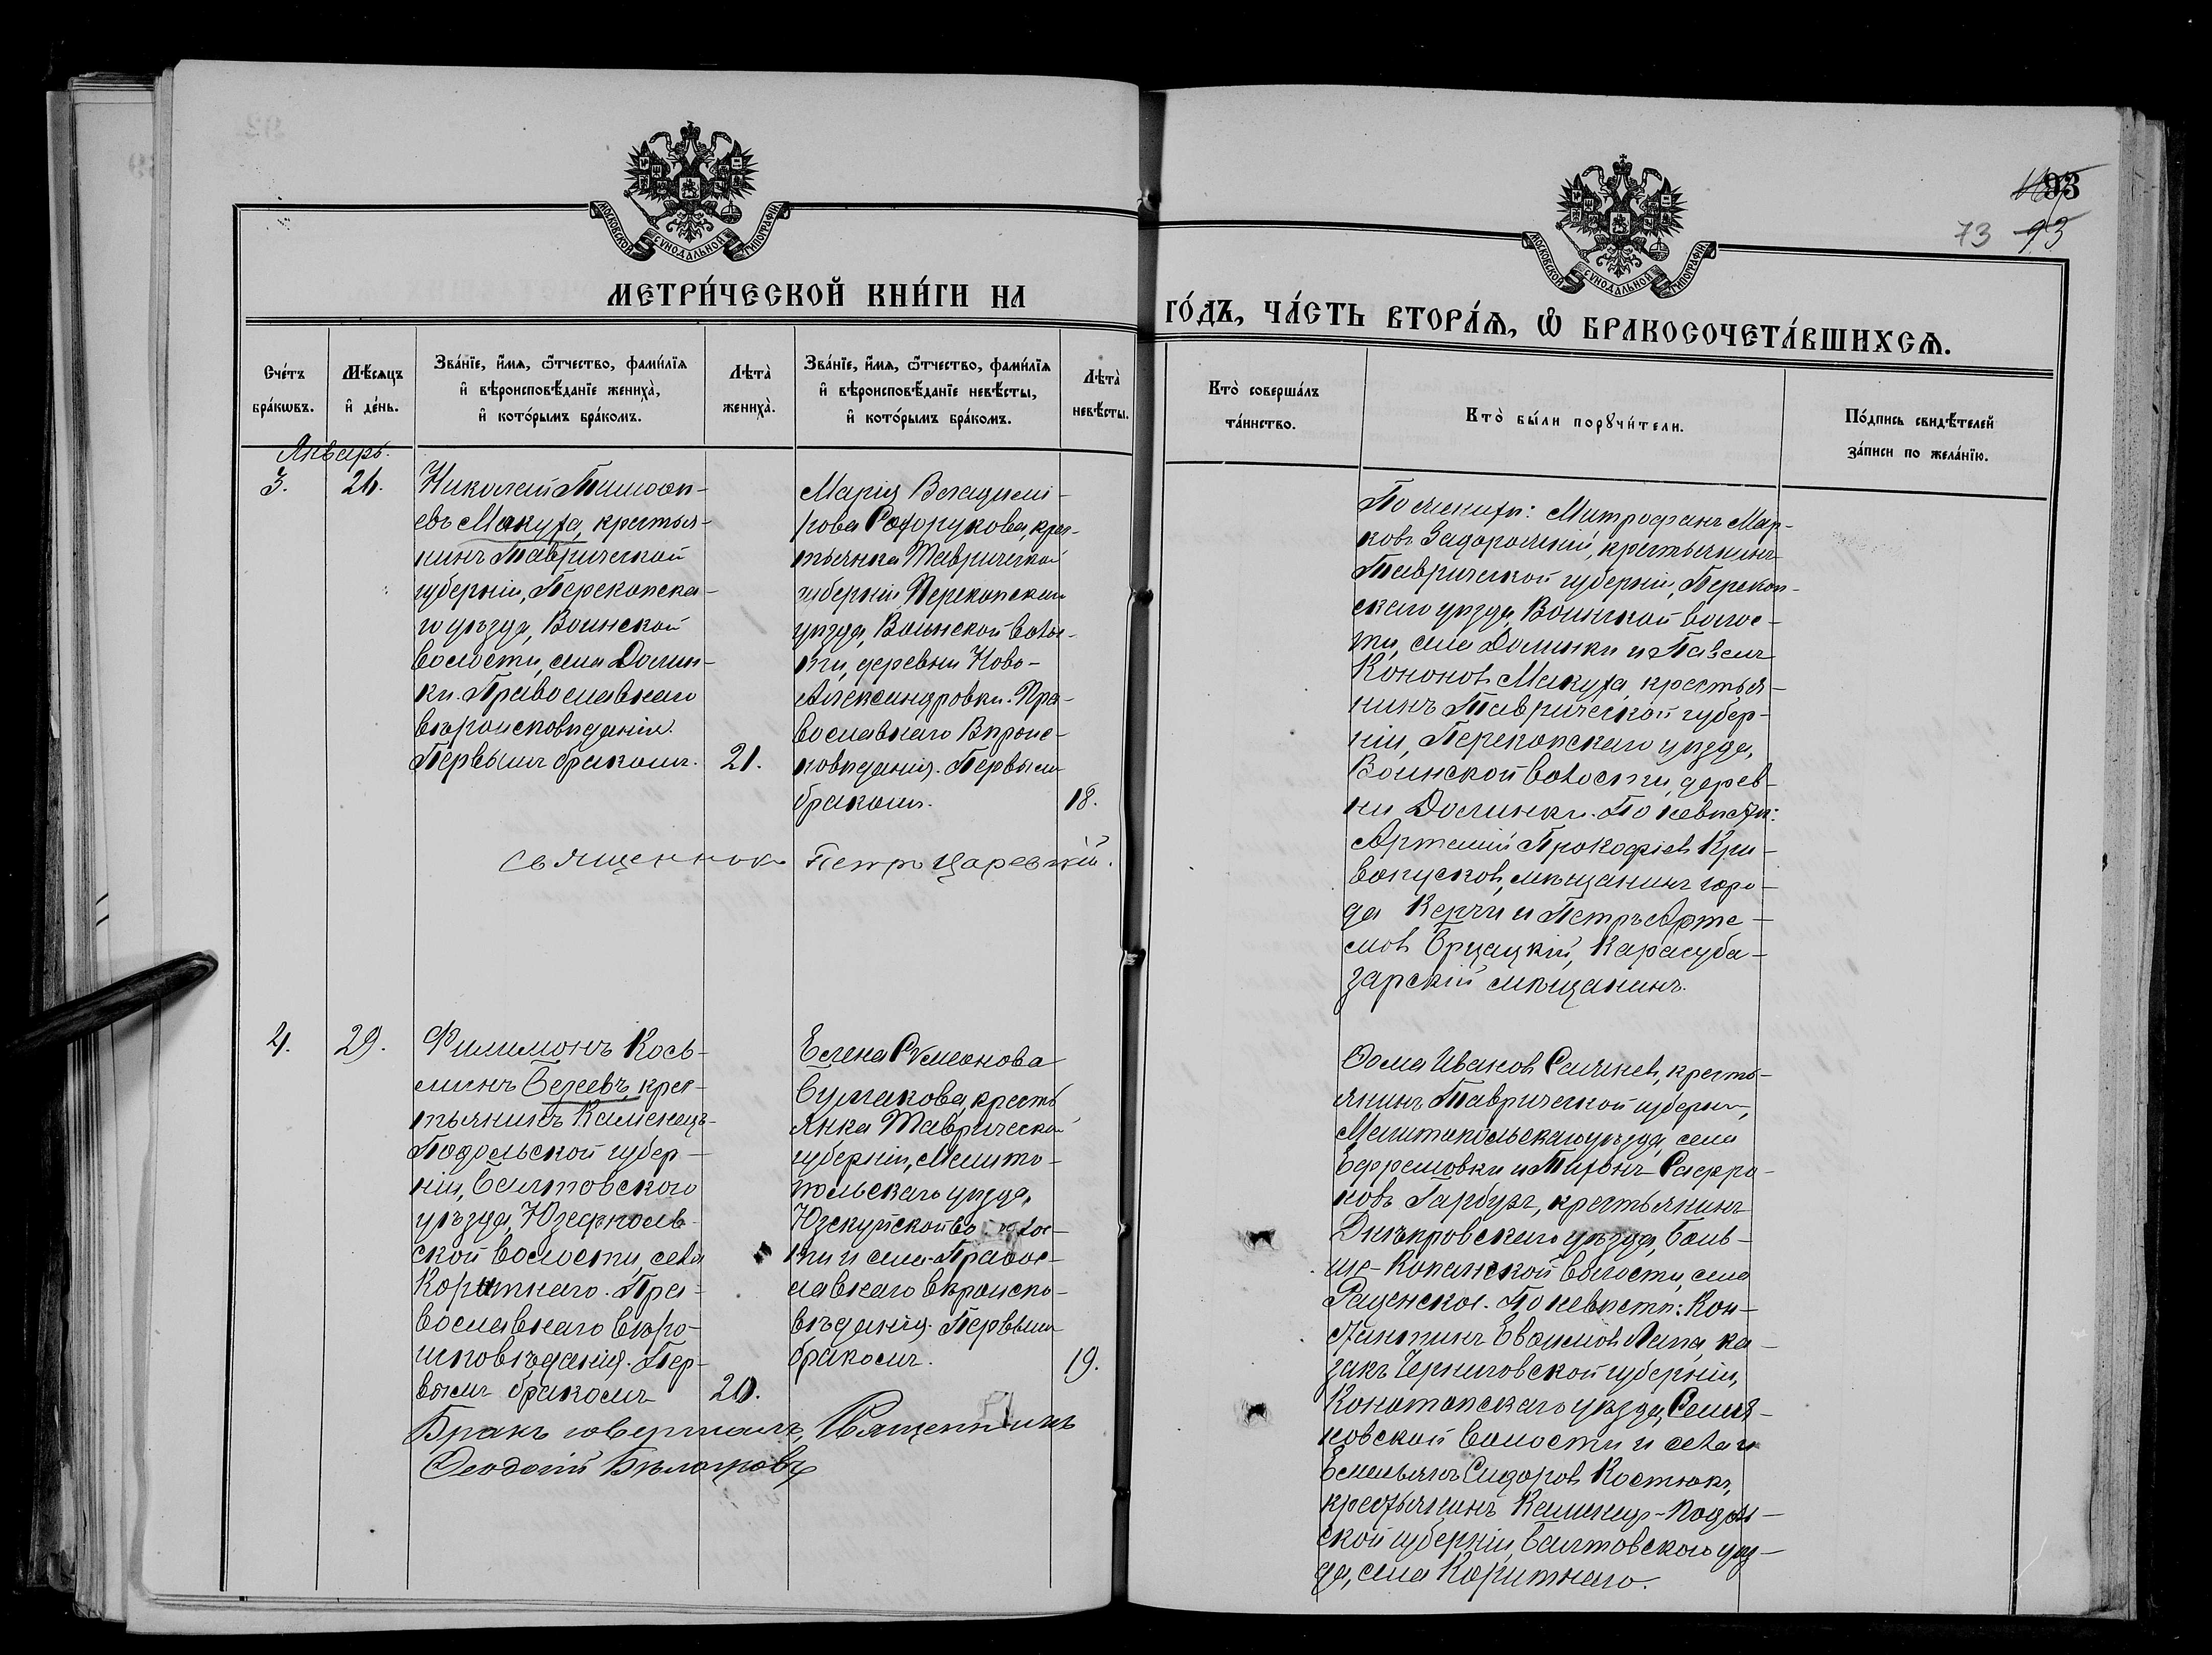 93
73 93
МОСКОВСКОЙ СѴНОДАЛЬНОЙ ТИПОГРАФІИ
МОСКОВСКОЙ СѴНОДАЛЬНОЙ ТИПОГРАФІИ
МЕТРИ́ЧЕСКОЙ КНИ́ГИ НА
ГО́ДЪ, ЧА́СТЬ ВТОРА́Ѧ, Ѽ БРАКОСОЧЕТА́ВШИХСѦ.
Сче́тъ
бра́кѡвъ.
Мѣ́сяцъ
и҆ де́нь.
Зва́нїе, и҆́мѧ, ѻ҆́тчество, фами́лїѧ
и҆ вѣроисповѣ́данїе жениха̀,
и҆ кото́рымъ бра́комъ.
Лѣта̀
жениха̀.
Зва́нїе, и҆́мѧ, ѻ҆́тчество, фами́лїѧ
и҆ вѣроисповѣ́данїе невѣ́сты,
и҆ кото́рымъ бра́комъ.
Лѣта̀
невѣ́сты.
Кто̀ соверша́лъ
та́инство.
Кто̀ бы́ли порꙋчи́тели.
По́дпись свидѣ́телей
за́писи по жела́нїю.
Январь.
3.
26.
Николай Тимофе-
евъ Макуха, крестья-
нинъ Таврической
губерніи, Перекопска-
го уѣзда, Воинской
волости, села Долин-
ки. Православнаго
вѣроисповѣданія.
Первымъ бракомъ.
21.
Марія Владимі-
рова Сафонукова, крес-
тьянка Таврической
губерніи Перекопскаго
уѣзда, Воинской волос-
ти, деревни Ново-
Александровки. Пра-
вославнаго Вѣроис-
повѣданія. Первымъ
бракомъ.
18.
Священникъ Петръ Царевскій.
По женихѣ: Митрофанъ Мар-
ковъ Задорожній, крестьянинъ
Таврической губерніи, Перекоп-
скаго уѣзда, Воинской волос-
ти, села Долинки и Павелъ
Кононовъ Макуха, крестья-
нинъ Таврической губер-
ніи, Перекопскаго уѣзда,
Воинской волости, дерев-
ни Долинки. По невѣстѣ:
Артемій Прокофіевъ Кри-
вокусковъ, мѣщанинъ горо-
да Керчи и Петръ Арте-
мовъ Брцацкій, Карасуба-
зарскій мѣщанинъ.
4.
29.
Филимонъ Кось-
минъ Белеевъ, крес-
тьянинъ Каменецъ-
Подольской губер-
ніи, Балтовского
уѣзда, Юзефполь-
ской волости, села
Корытнаго. Пра-
вославнаго вѣро-
исповѣданія. Пер-
вымъ бракомъ
20.
Елена Симонова
Бурлакова, кресть
янка Таврической
губерніи, Мелито-
польскаго уѣзда,
Юзкуйской волос-
ти и села. Правос-
лавнаго вѣроиспо-
вѣданія. Первымъ
бракомъ.
19.
Бракъ совершалъ, Священникъ
Феодосій Бѣлогуровъ
Ѳома Ивановъ Саченевъ, кресть-
янинъ Таврической губерніи,
Мелитопольскаго уѣзда, села
Ефремовки и Тихонъ Сафро-
новъ Гарбузъ, крестьянинъ
Днѣпровскаго уѣзда, Боль-
ше-Копанской волости, села
Раденское. По невѣстѣ: Кон-
стантинъ Евфимовъ Лапа, ка-
закъ Черниговской губерніи,
Конотопскаго уѣзда, Семя-
новской волости и села и
Емельянъ Сидоровъ Костюкъ,
крестьянинъ Каменецъ-Подоль-
ской губерніи Балтовского уѣз-
да, села Корытнаго.